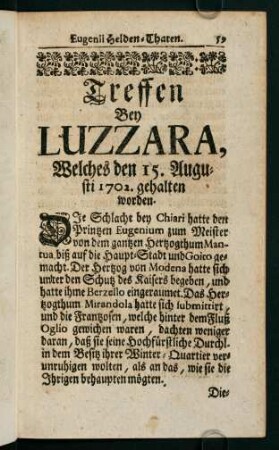 Eugenii Helden-Thaten. 59
Treffen
Bey
LUZZARA,
Welches den 15. Augu-
sti 1702. gehalten
worden.
DIe Schlacht bey Chiari hatte den
Printzen Eugenium zum Meister
von dem gantzen Hertzogthum Man-
tua biß auf die Haupt-Stadt und Goito ge-
macht. Der Hertzog von Modena hatte sich
unter den Schutz des Kaisers begeben, und
hatte ihme Berzello eingeraumet. Das Her-
tzogthum Mirandola hatte sich submittirt,
und die Frantzosen, welche hinter dem Fluß
Oglio gewichen waren, dachten weniger
daran, daß sie seine Hochfürstliche Durchl.
in dem Besitz ihrer Winter-Quartier ver-
unruhigen wolten, als an das, wie sie die
Ihrigen behaupten mögten.
Die-